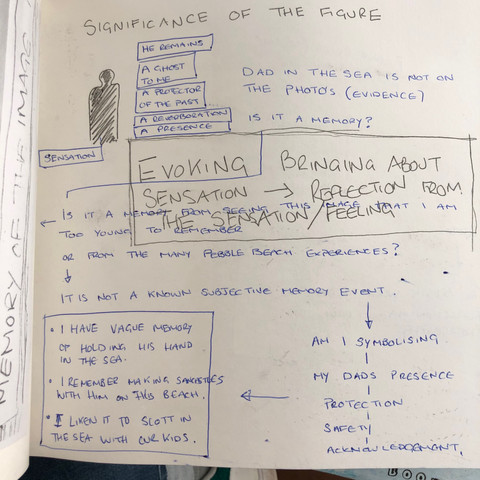 SIGNIFICANCE OF THE FIGURE
HE REMAINS
A GHOST
TO ME
A PROTECTOR
OF THE PAST
A PRESENCE
SENSATION
DAD IN THE SEA IS NOT ON
THE PHOTO'S (EVIDENCE)
IS IT A MEMORY?
EVOKING BRINGING ABOUT
SENSATION → REFLECTION FROM
THE SENSATION/FEELING
IS IT A MEMORY FROM SEEING THIS IMAGE THAT I AM
TOO YOUNG TO REMEMBER
OR FROM THE MANY PEBBLE BEACH EXPERIENCES?
IT IS NOT A KNOWN SUBJECTIVE MEMORY EVENT.
• I HAVE VAGUE MEMORY
OF HOLDING HIS HAND
IN THE SEA.
• I REMEMBER MAKING SANCASTLES
WITH HIM ON THIS BEACH.
• I LIKEN IT TO SCOTT IN
THE SEA WITH OUR KIDS.
AM I SYMBOLISING
MY DADS PRESENCE
PROTECTION
SAFETY
ACKNOWLEDGEMENT.
MEMORY OF THE IMAGE